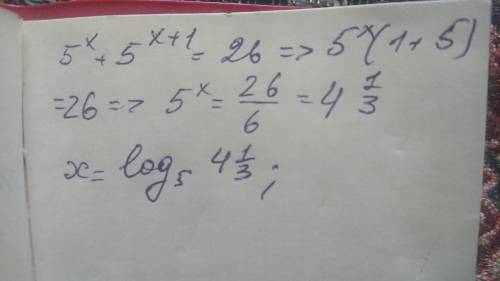 5^x + 5^{x+1} = 26 => 5^x(1+5)
=26 => 5^x = 26/6 = 4 1/3
x = log_5 4 1/3 ;